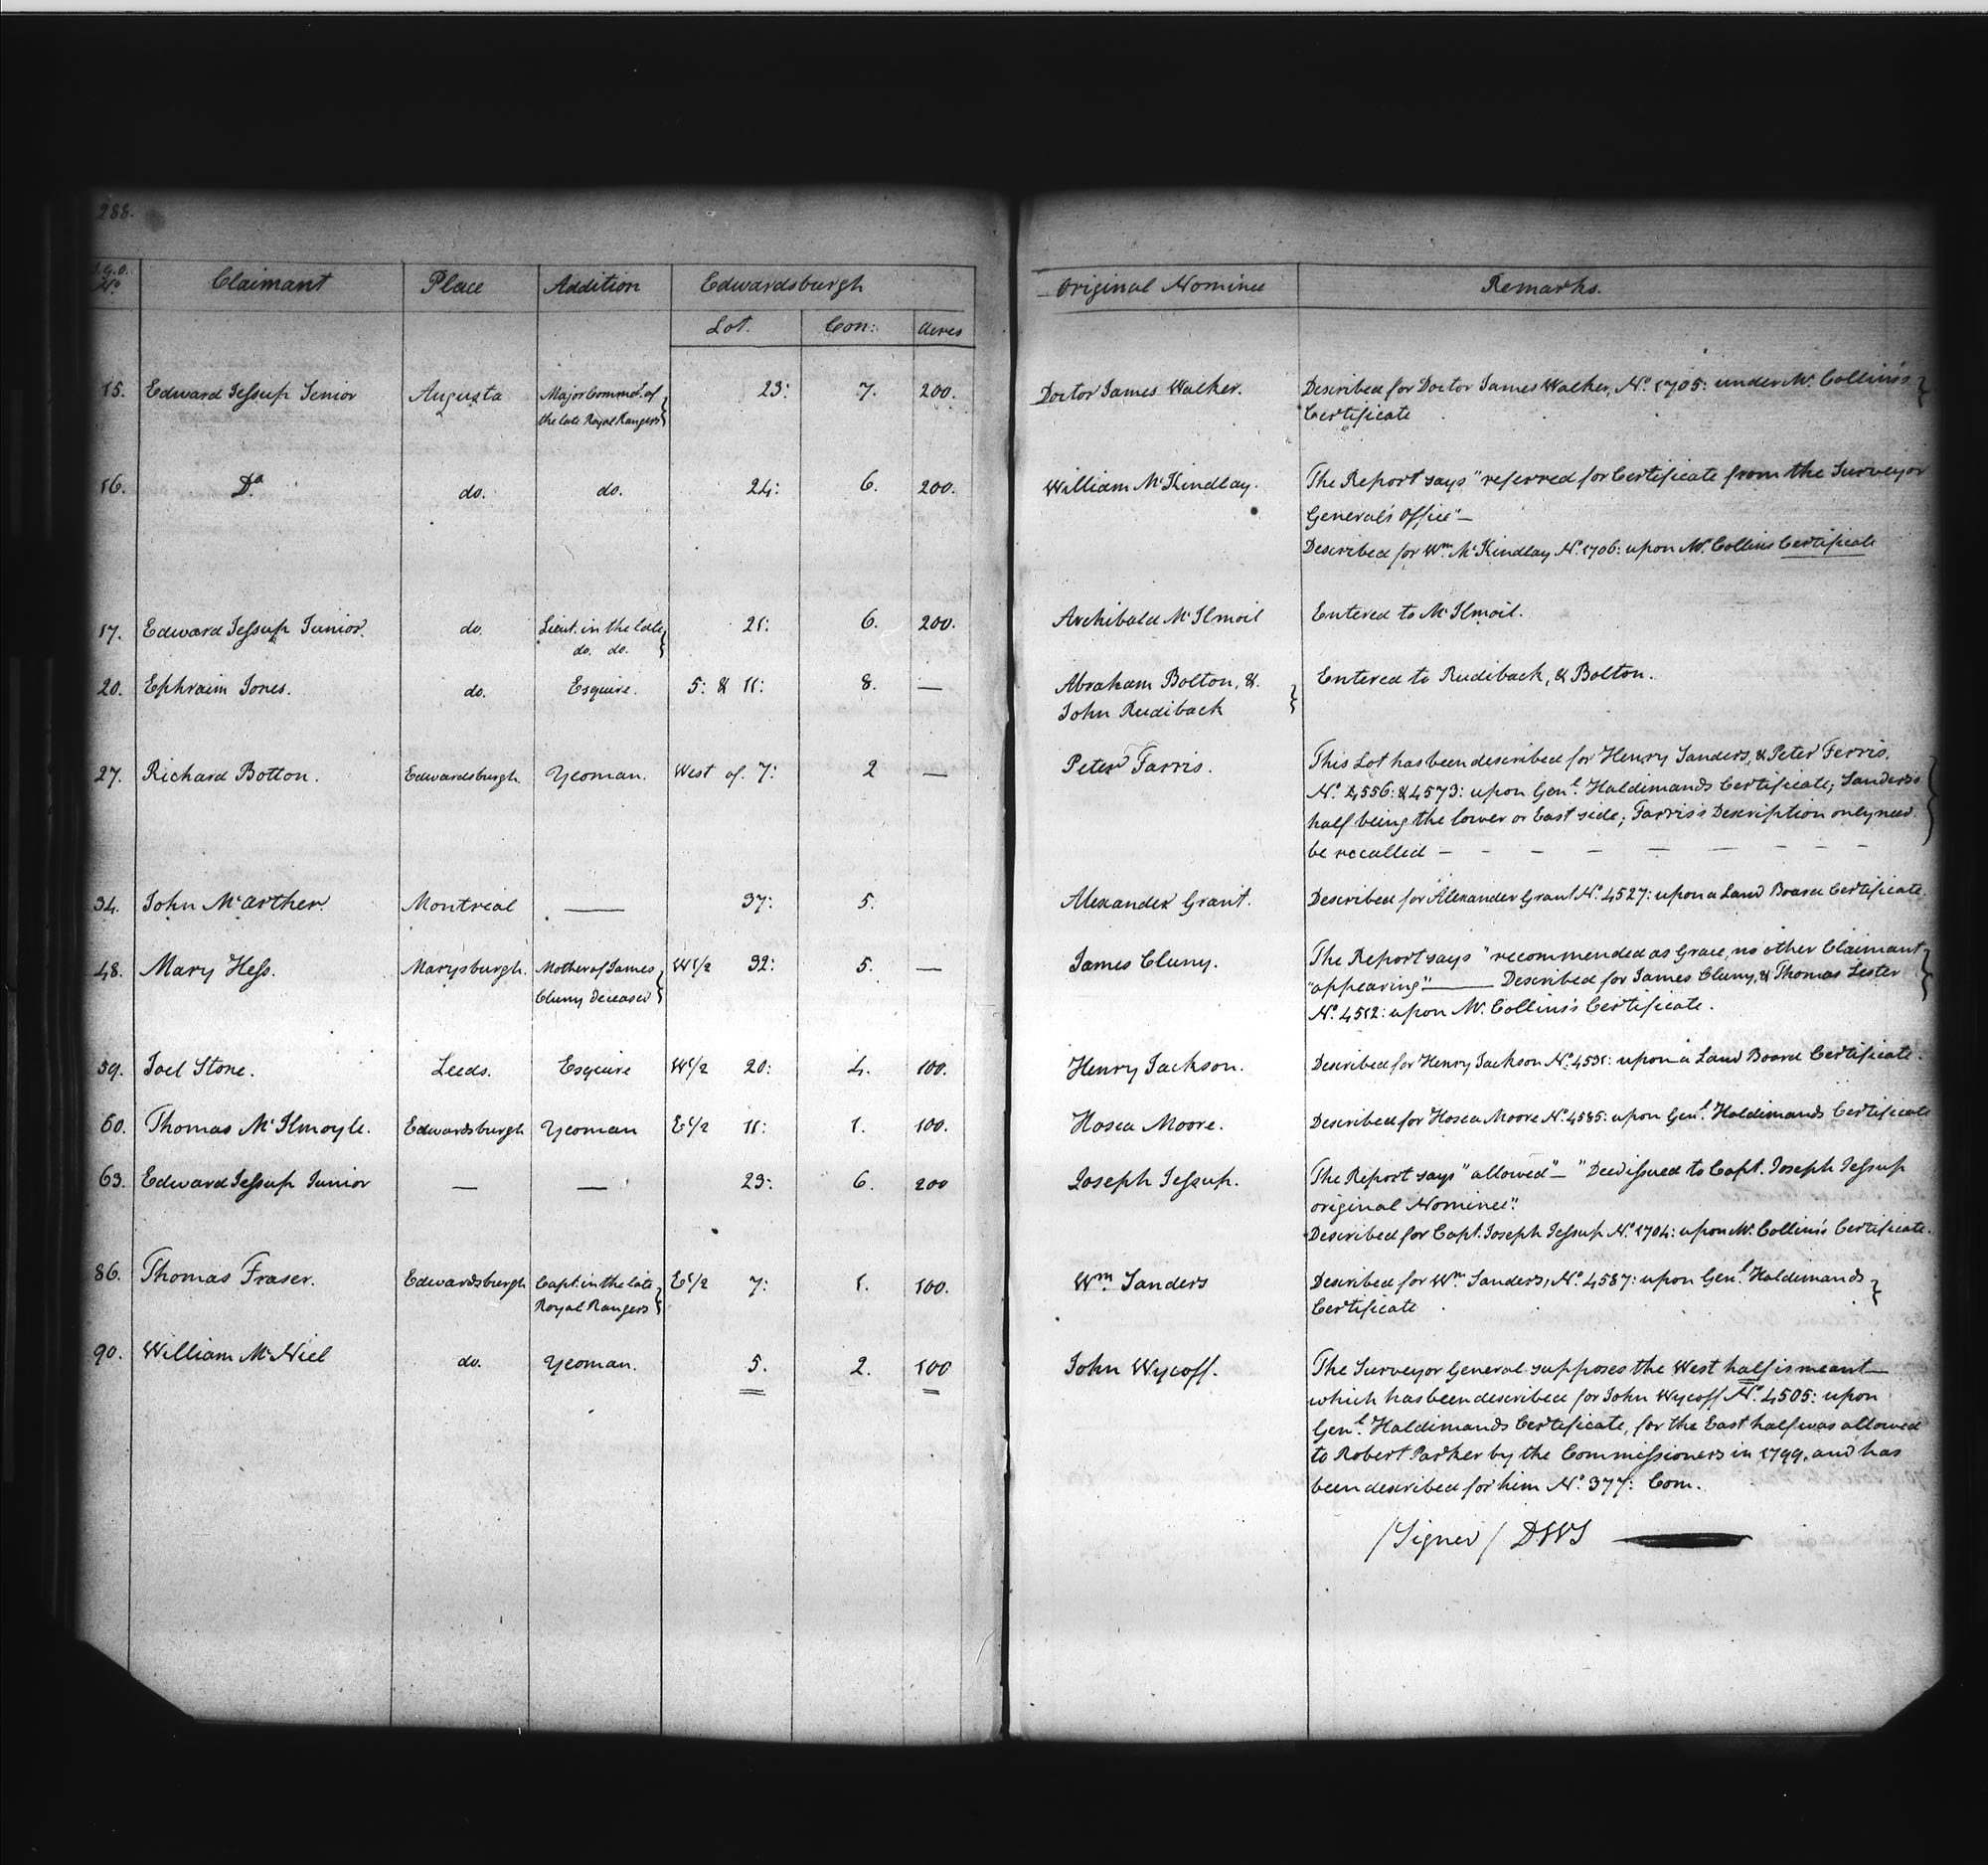 288.
S.G.O. No. Claimant Place Addition Edwardsburgh Original Nominee Remarks.
Lot. Con: Acres
15. Edward Jessup Senior Augusta Major Commdt. of the late Royal Rangers} 23: 7. 200. Doctor James Walker. Described for Doctor James Walker, No. 1705: under Mr. Collins's }
Certificate
16. Do. do. do. 24: 6. 200. William McKindlay. The Report says "referred for Certificate from the Surveyor
General's Office"—
Described for Wm. McKindlay No. 1706: upon Mr. Collins Certificate
17. Edward Jessup Junior. do. Lieut. in the late do. do. } 21: 6. 200. Archibald McIlmoil Entered to McIlmoil.
20. Ephraim Jones. do. Esquire. 5: & 11: 8. — Abraham Bolton, &. John Rudiback } Entered to Rudiback, & Bolton.
27. Richard Botton. Edwardsburgh Yeoman. West of 7: 2 — Peter Farris. This Lot has been described for Henry Sanders, & Peter Ferris.
No. 4556: & 4573: upon Genl. Haldimands Certificate; Sanders's
half being the lower or East side; Farris's Description only need
be recalled — — — — — — — — —
34. John McArther. Montreal — 37: 5. Alexander Grant. Described for Alexander Grant No. 4527: upon a Land Board Certificate.
48. Mary Hess. Marysburgh. Mother of James Cluny deceased } W1/2 32: 5. — James Cluny. The Report says "recommended as Grace, no other Claimant
"appearing" — Described for James Cluny, & Thomas Lester
No. 4512: upon Mr. Collins's Certificate.
59. Joel Stone. Leeds. Esquire W1/2 20: 4. 100. Henry Jackson. Described for Henry Jackson No. 4531: upon a Land Board Certificate.
60. Thomas McIlmoyle. Edwardsburgh Yeoman E1/2 11: 1. 100. Hosea Moore. Described for Hosea Moore No. 4585: upon Genl. Haldimands Certificate
63. Edward Jessup Junior — — 23: 6. 200 Joseph Jessup. The Report says "allowed"— "Deed issued to Capt. Joseph Jessup
original Nominee".
Described for Capt. Joseph Jessup No. 1704: upon Mr. Collins's Certificate.
86. Thomas Fraser. Edwardsburgh Capt. in the late Royal Rangers } E1/2 7: 1. 100. Wm. Sanders Described for Wm. Sanders, No. 4587: upon Genl. Haldimands }
Certificate
90. William McNiel do. Yeoman. 5. 2. 100 John Wycoff. The Surveyor General supposes the West half is meant
which has been described for John Wycoff No. 4505: upon
Genl. Haldimands Certificate, for the East half was allowed
to Robert Parker by the Commissioners in 1799. and has
been described for him No. 377: Com.
/Signed/ DWS